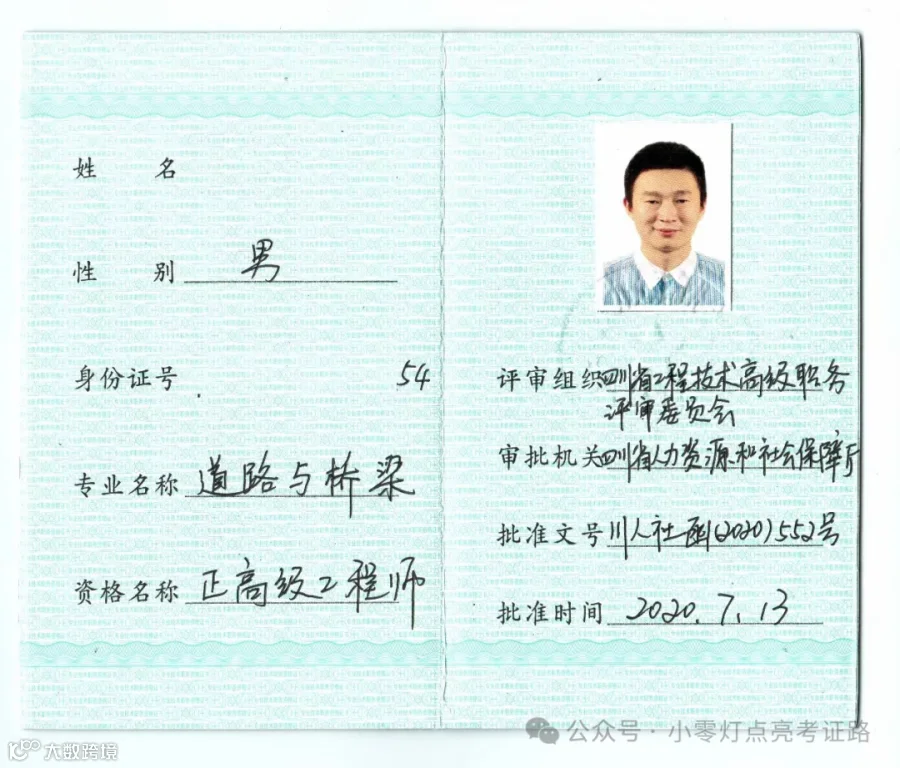 姓名
性别 男
身份证号 54
专业名称 道路与桥梁
资格名称 正高级工程师
评审组织 四川省工程技术高级职务
评审委员会
审批机关 四川省人力资源和社会保障厅
批准文号 川人社函(2020)552号
批准时间 2020.7.13
公众号·小零灯点亮考证路
大数跨境